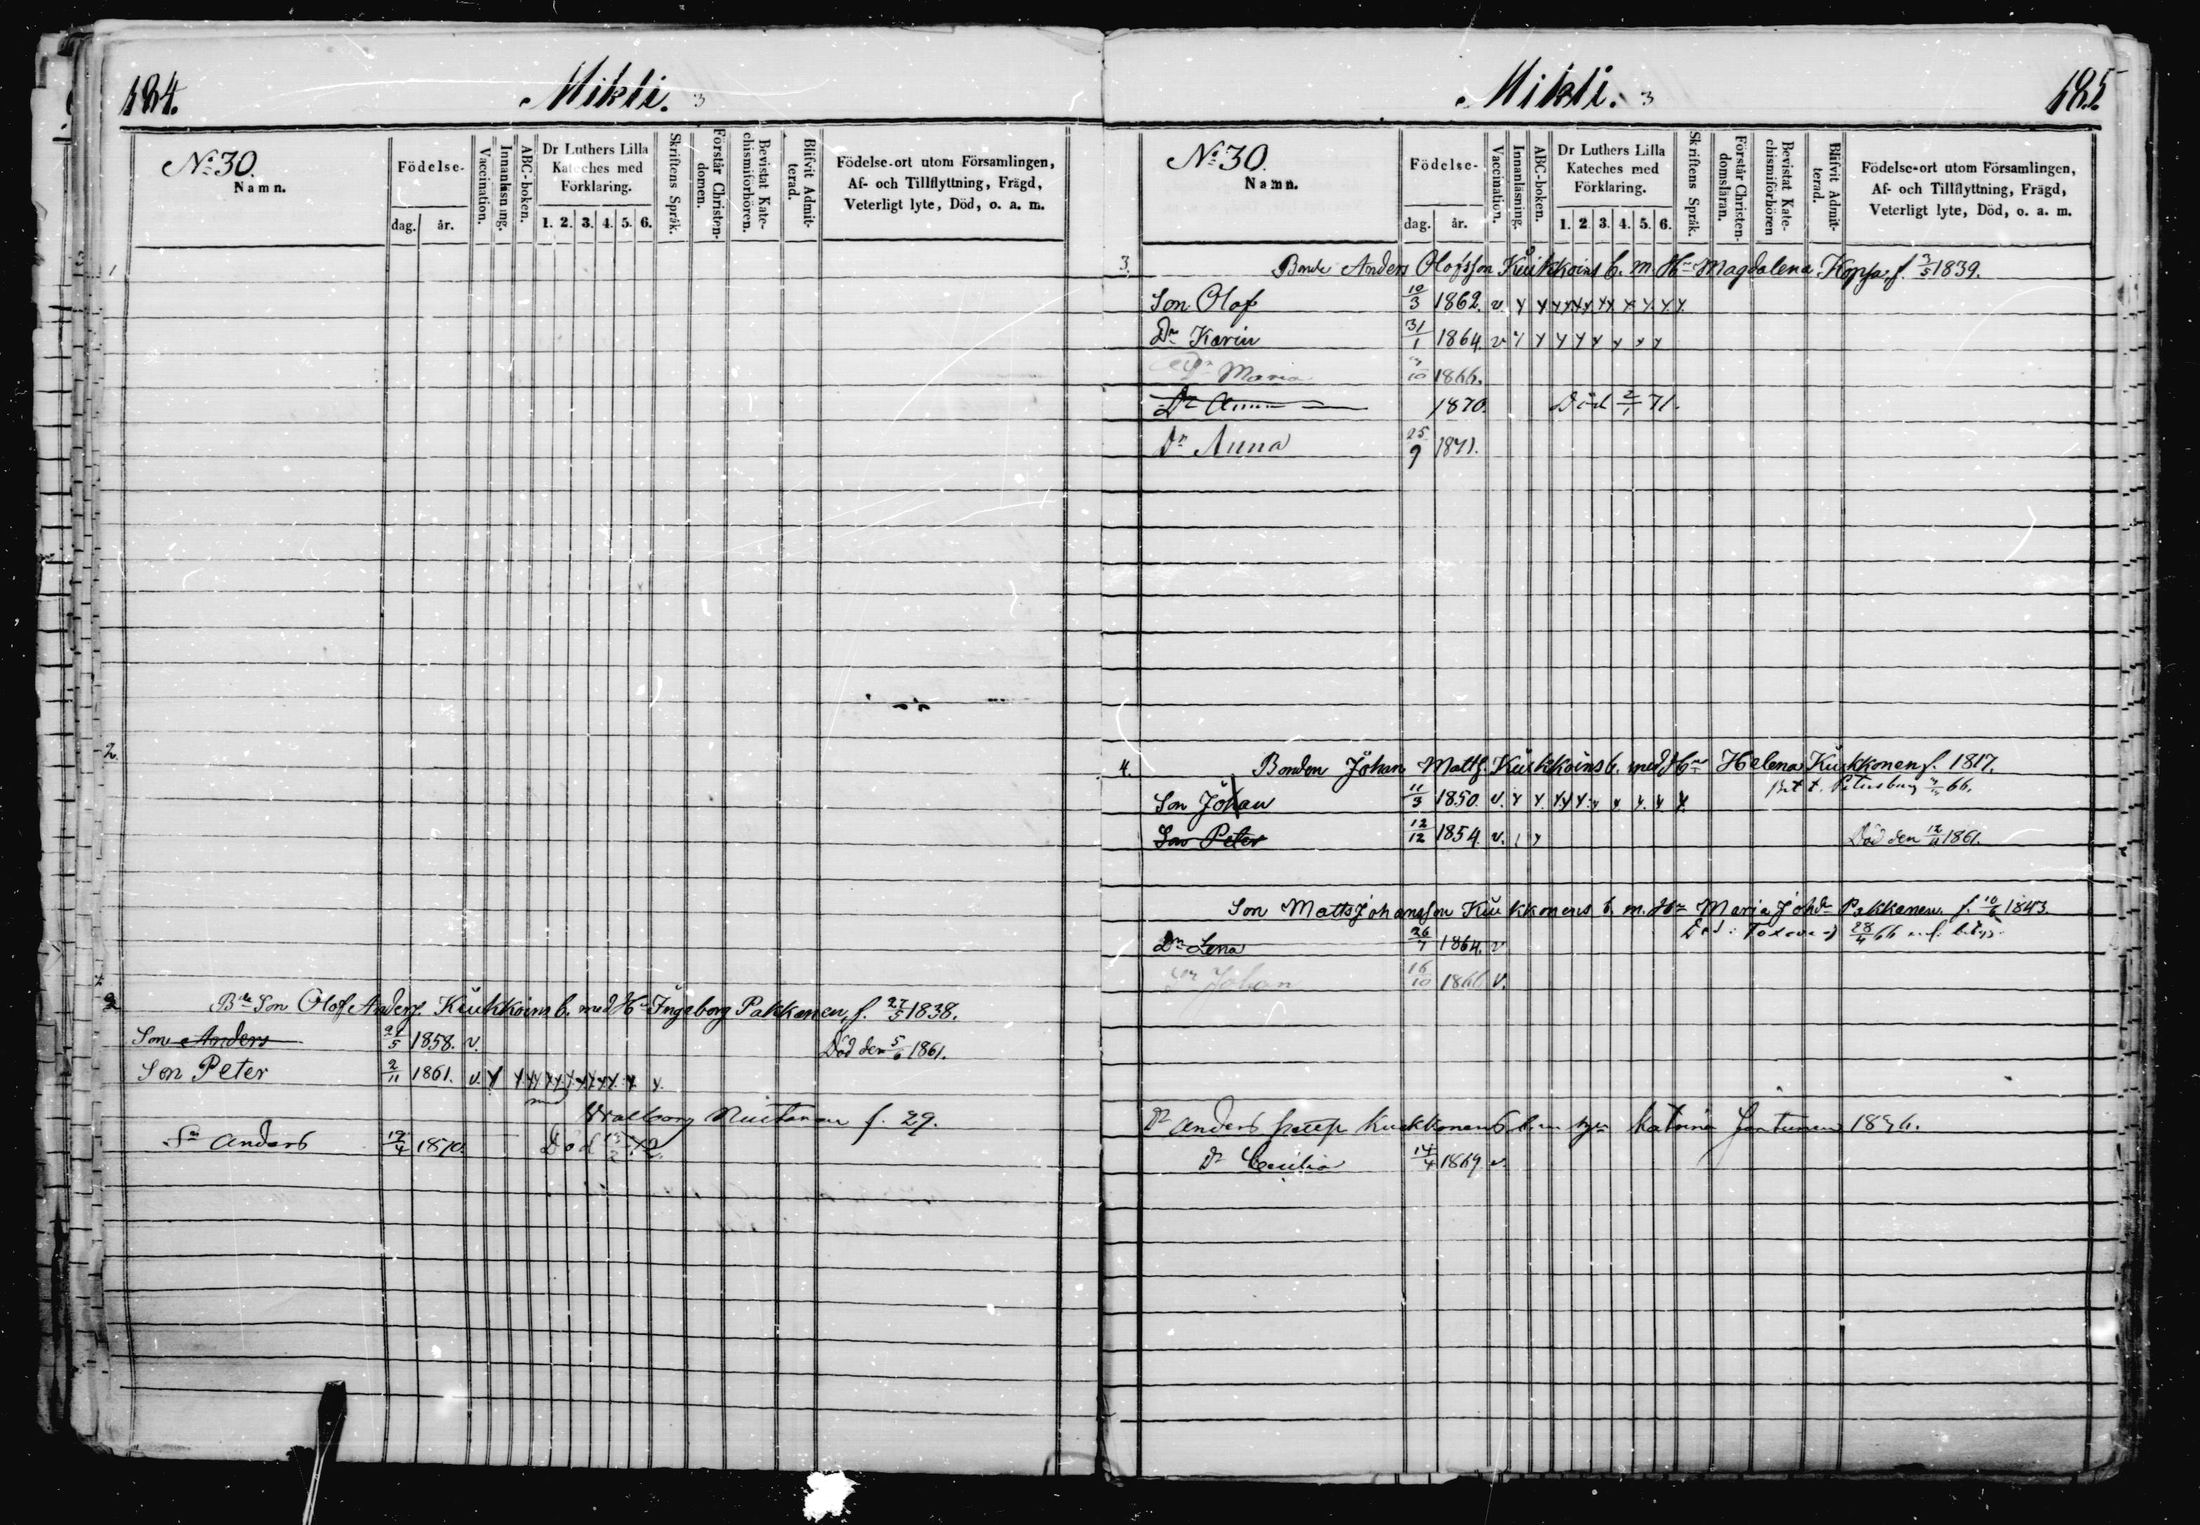 184.
Mikli. 3
No 30.
Namn.
Födelse-
dag. år.
Vaccination.
Innanläsning.
ABC-boken.
Dr Luthers Lilla
Kateches med
Förklaring.
1. 2. 3. 4. 5. 6.
Skriftens Språk.
Förstår Christen-
domen.
Bevistat Kate-
chismiförhören.
Blifvit Admit-
terad.
Födelse-ort utom Församlingen,
Af- och Tillflyttning, Frägd,
Veterligt lyte, Död, o. a. m.
1
2.
Son Olof Anders. Kuukkoins b. med Hu Ingeborg Pakkanen, f. 27/5 1838.
Son Anders 1858. v. Död den 5/6 1861.
Son Peter 2/11 1861. v. y y y y y y y y y y y.
Walborg f. 29.
Sn Anders 1870. Död
185
Mikli. 3
No 30.
Namn.
Födelse-
dag. år.
Vaccination.
Innanläsning.
ABC-boken.
Dr Luthers Lilla
Kateches med
Förklaring.
1. 2. 3. 4. 5. 6.
Skriftens Språk.
Förstår Christen-
domsläran.
Bevistat Kate-
chismiförhören
Blifvit Admit-
terad.
Födelse-ort utom Församlingen,
Af- och Tillflyttning, Frägd,
Veterligt lyte, Död, o. a. m.
3. Bonde Anders Olofsson Kuukkoins b. m. Hu Magdalena f. 1839.
Son Olof 10/3 1862. v. y y y y y y y y y y y y.
Dr Karin 31/1 1864. v y y y y y y y y
Maria 1866.
Dr Anna 1870. Död 2/1 71.
Dr Anna 25/9 1871.
4. Bonden Johan Matts. Kuukkoins b. med Hu Helena Kukkonen f. 1817.
Petersburg 66.
Son Johan 11/3 1850. v. y y y y y y y y y y
Son Peter 12/12 1854. v. y Död den 1861.
Son Matts Johansson Kuukkonens b. m. Hu Maria Johdr Pakkanen. f. 10/6 1843.
Dr Lena 26/7 1864. v Död i Toxova 28/4 66
Johan 16/10 1866 v.
Anders Kukkonens b. m hu Katrina Jantunen
Dr Cecilia 14/4 1869 v.